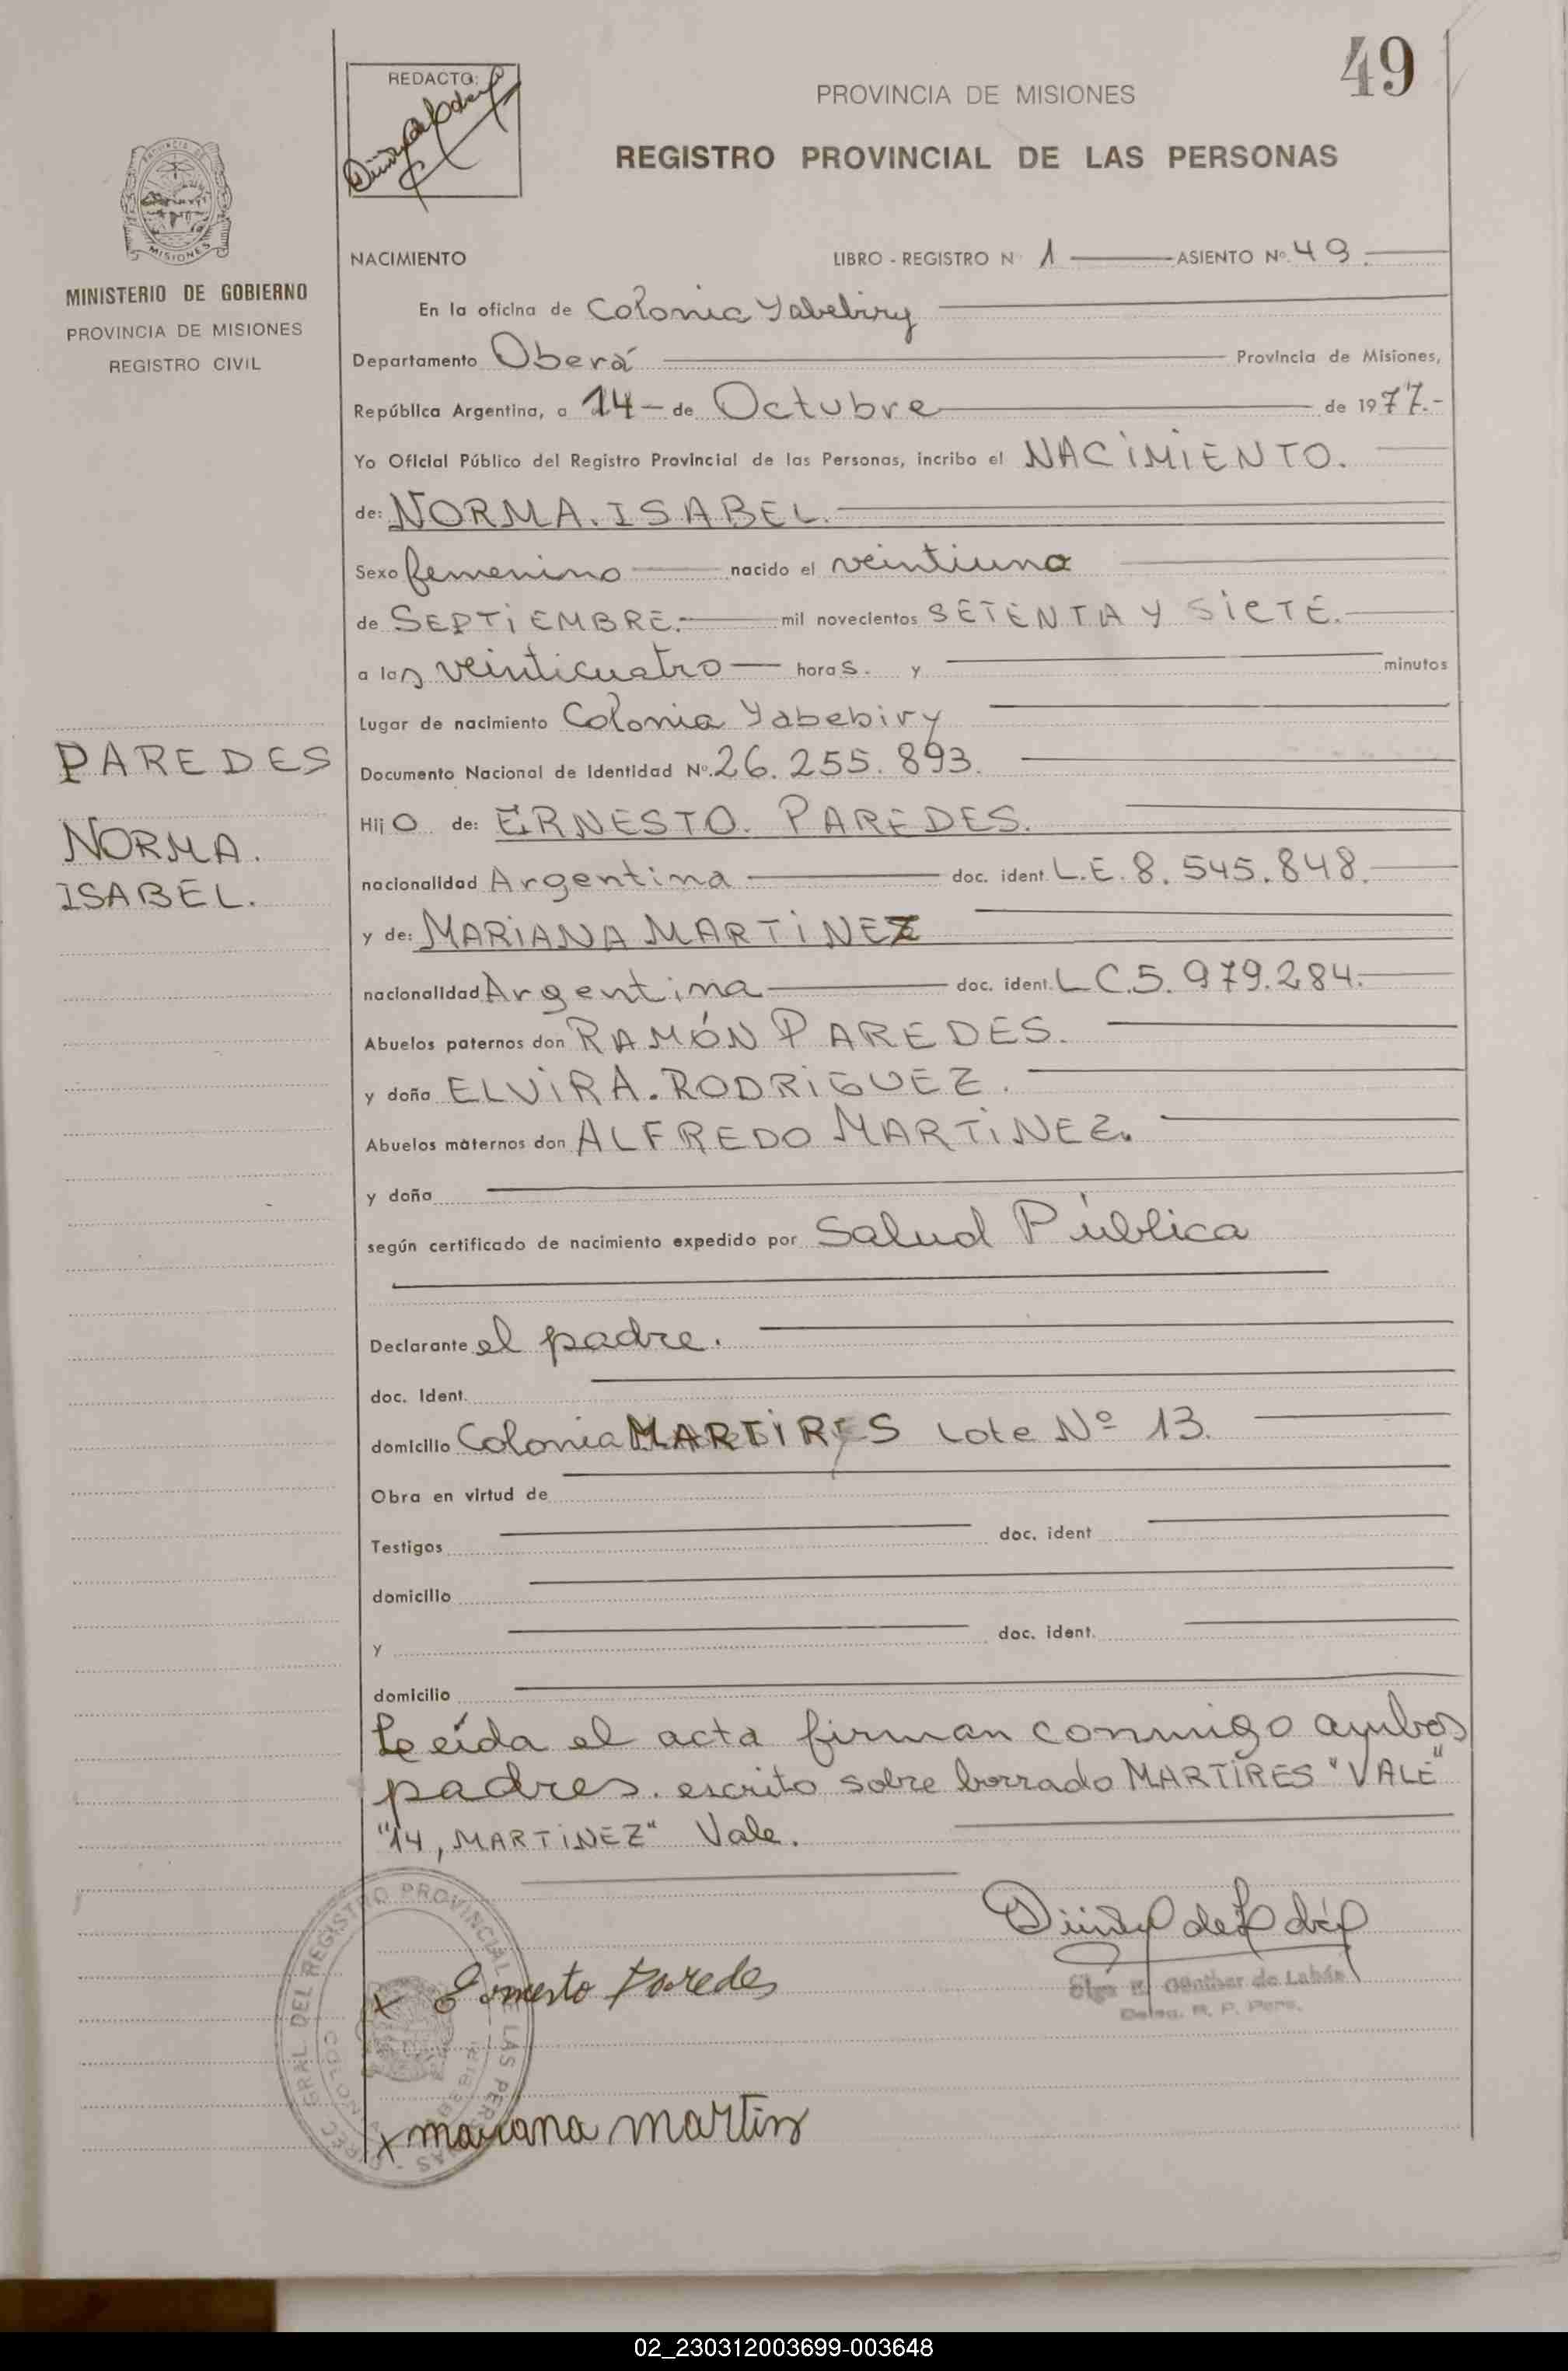 49
REDACTO:
PROVINCIA DE MISIONES
REGISTRO PROVINCIAL DE LAS PERSONAS
MISIONES
MINISTERIO DE GOBIERNO
PROVINCIA DE MISIONES
REGISTRO CIVIL
NACIMIENTO LIBRO - REGISTRO Nº 1 ASIENTO Nº 49.
En la oficina de Colonia Yabebiry
Departamento Oberá Provincia de Misiones,
República Argentina, a 14 - de Octubre de 1977.-
Yo Oficial Público del Registro Provincial de las Personas, incribo el NACIMIENTO.
de: NORMA. ISABEL.
Sexo femenino nacido el veintiuno
de SEPTIEMBRE.- mil novecientos SETENTA Y SIETE.
a las veinticuatro horas. y minutos
Lugar de nacimiento Colonia Yabebiry
Documento Nacional de Identidad Nº. 26.255.893.
PAREDES
NORMA.
ISABEL.
Hijo de: ERNESTO. PAREDES.
nacionalidad Argentina doc. ident. L.E. 8.545.848.
y de: MARIANA MARTINEZ
nacionalidad Argentina doc. ident. L C. 5.979.284.
Abuelos paternos don RAMÓN PAREDES.
y doña ELVIRA. RODRIGUEZ.
Abuelos maternos don ALFREDO MARTINEZ.
y doña
según certificado de nacimiento expedido por Salud Pública
Declarante el padre.
doc. Ident.
domicilio Colonia MARTIRES Lote Nº 13.
Obra en virtud de
Testigos doc. ident
domicilio
y doc. ident.
domicilio
Leída el acta firman conmigo ambos
padres. escrito sobre borrado MARTIRES "VALE"
"14, MARTINEZ" Vale.
x Ernesto Paredes
Olga E. Günther de Labán
Deleg. R. P. Pers.
x mariana martin
02_230312003699-003648